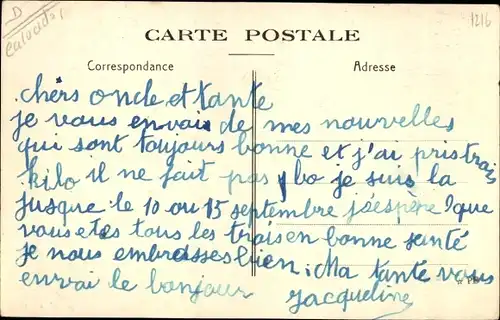 D
Calvados
1216
CARTE POSTALE
Correspondance
Adresse
chers oncle et tante
je vous envais de mes nourvelles
qui sont toujours bonne et j'ai pris trais
kilo il ne fait pas bo je suis la
jusque le 10 ou 15 septembre j'éspère que
vous etes tous les trais en bonne santé
je nous embrasses bien. Ma tante vous
envai le bonjour Jacqueline